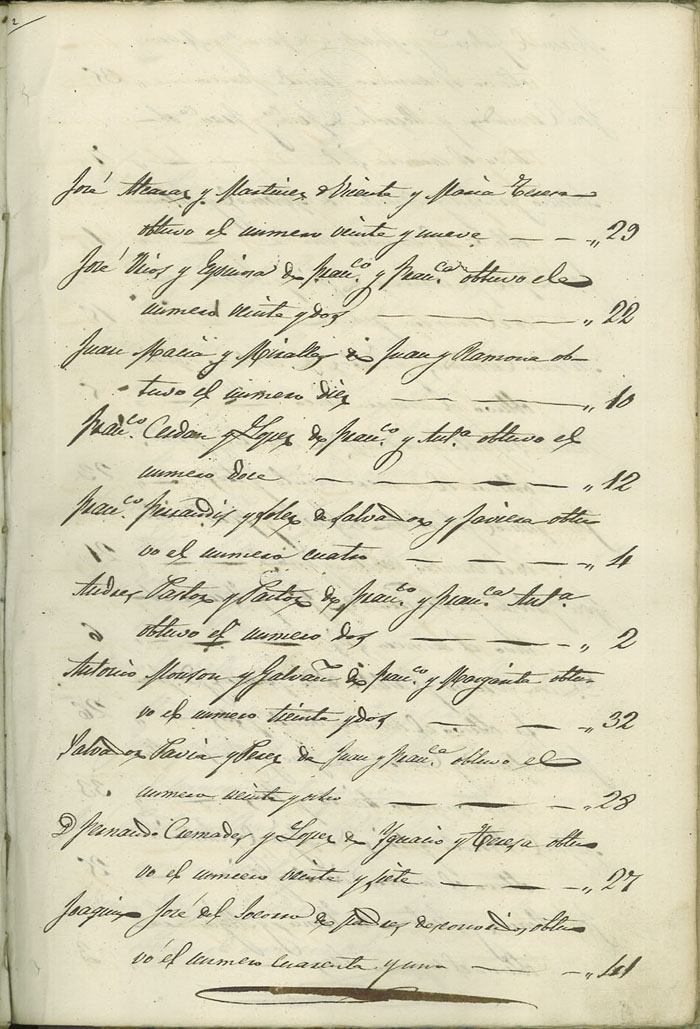 2
José Alcaraz y Martinez d Vicente y Maria Teresa
obtuvo el numero veinte y nueve — — „ 29
José Rios y Espinosa de Fran.co y Fran.ca obtuvo el
numero veinte y dos — — „ 22
Juan Macia y Miralles de Juan y Ramona ob-
tuvo el numero diez — — „ 10
Fran.co Cerdan y Lopez de Fran.co y Ant.a obtuvo el
numero doce — — — „ 12
Fran.co Ferrandis y de Salvador y Javiera obtu
vo el numero cuatro — — — „ 4
Andres Pastor y Pastor de Fran.co y Fran.ca Ant.a
obtuvo el numero dos — — „ 2
Antonio Monson y Galvañ de Fran.co y Margarita obtu-
vo el numero treinta y dos — — — „ 32
Salvador Pavia y Perez de Juan y Fran.ca obtuvo el
numero veinte y ocho — — — „ 28
D Fernando Cremades y Lopez de Ygnacio y Teresa obtu
vo el numero veinte y siete — — — „ 27
Joaquin José del Socorro de padres desconocidos obtu
vo el numero cuarenta y uno — — „ 41